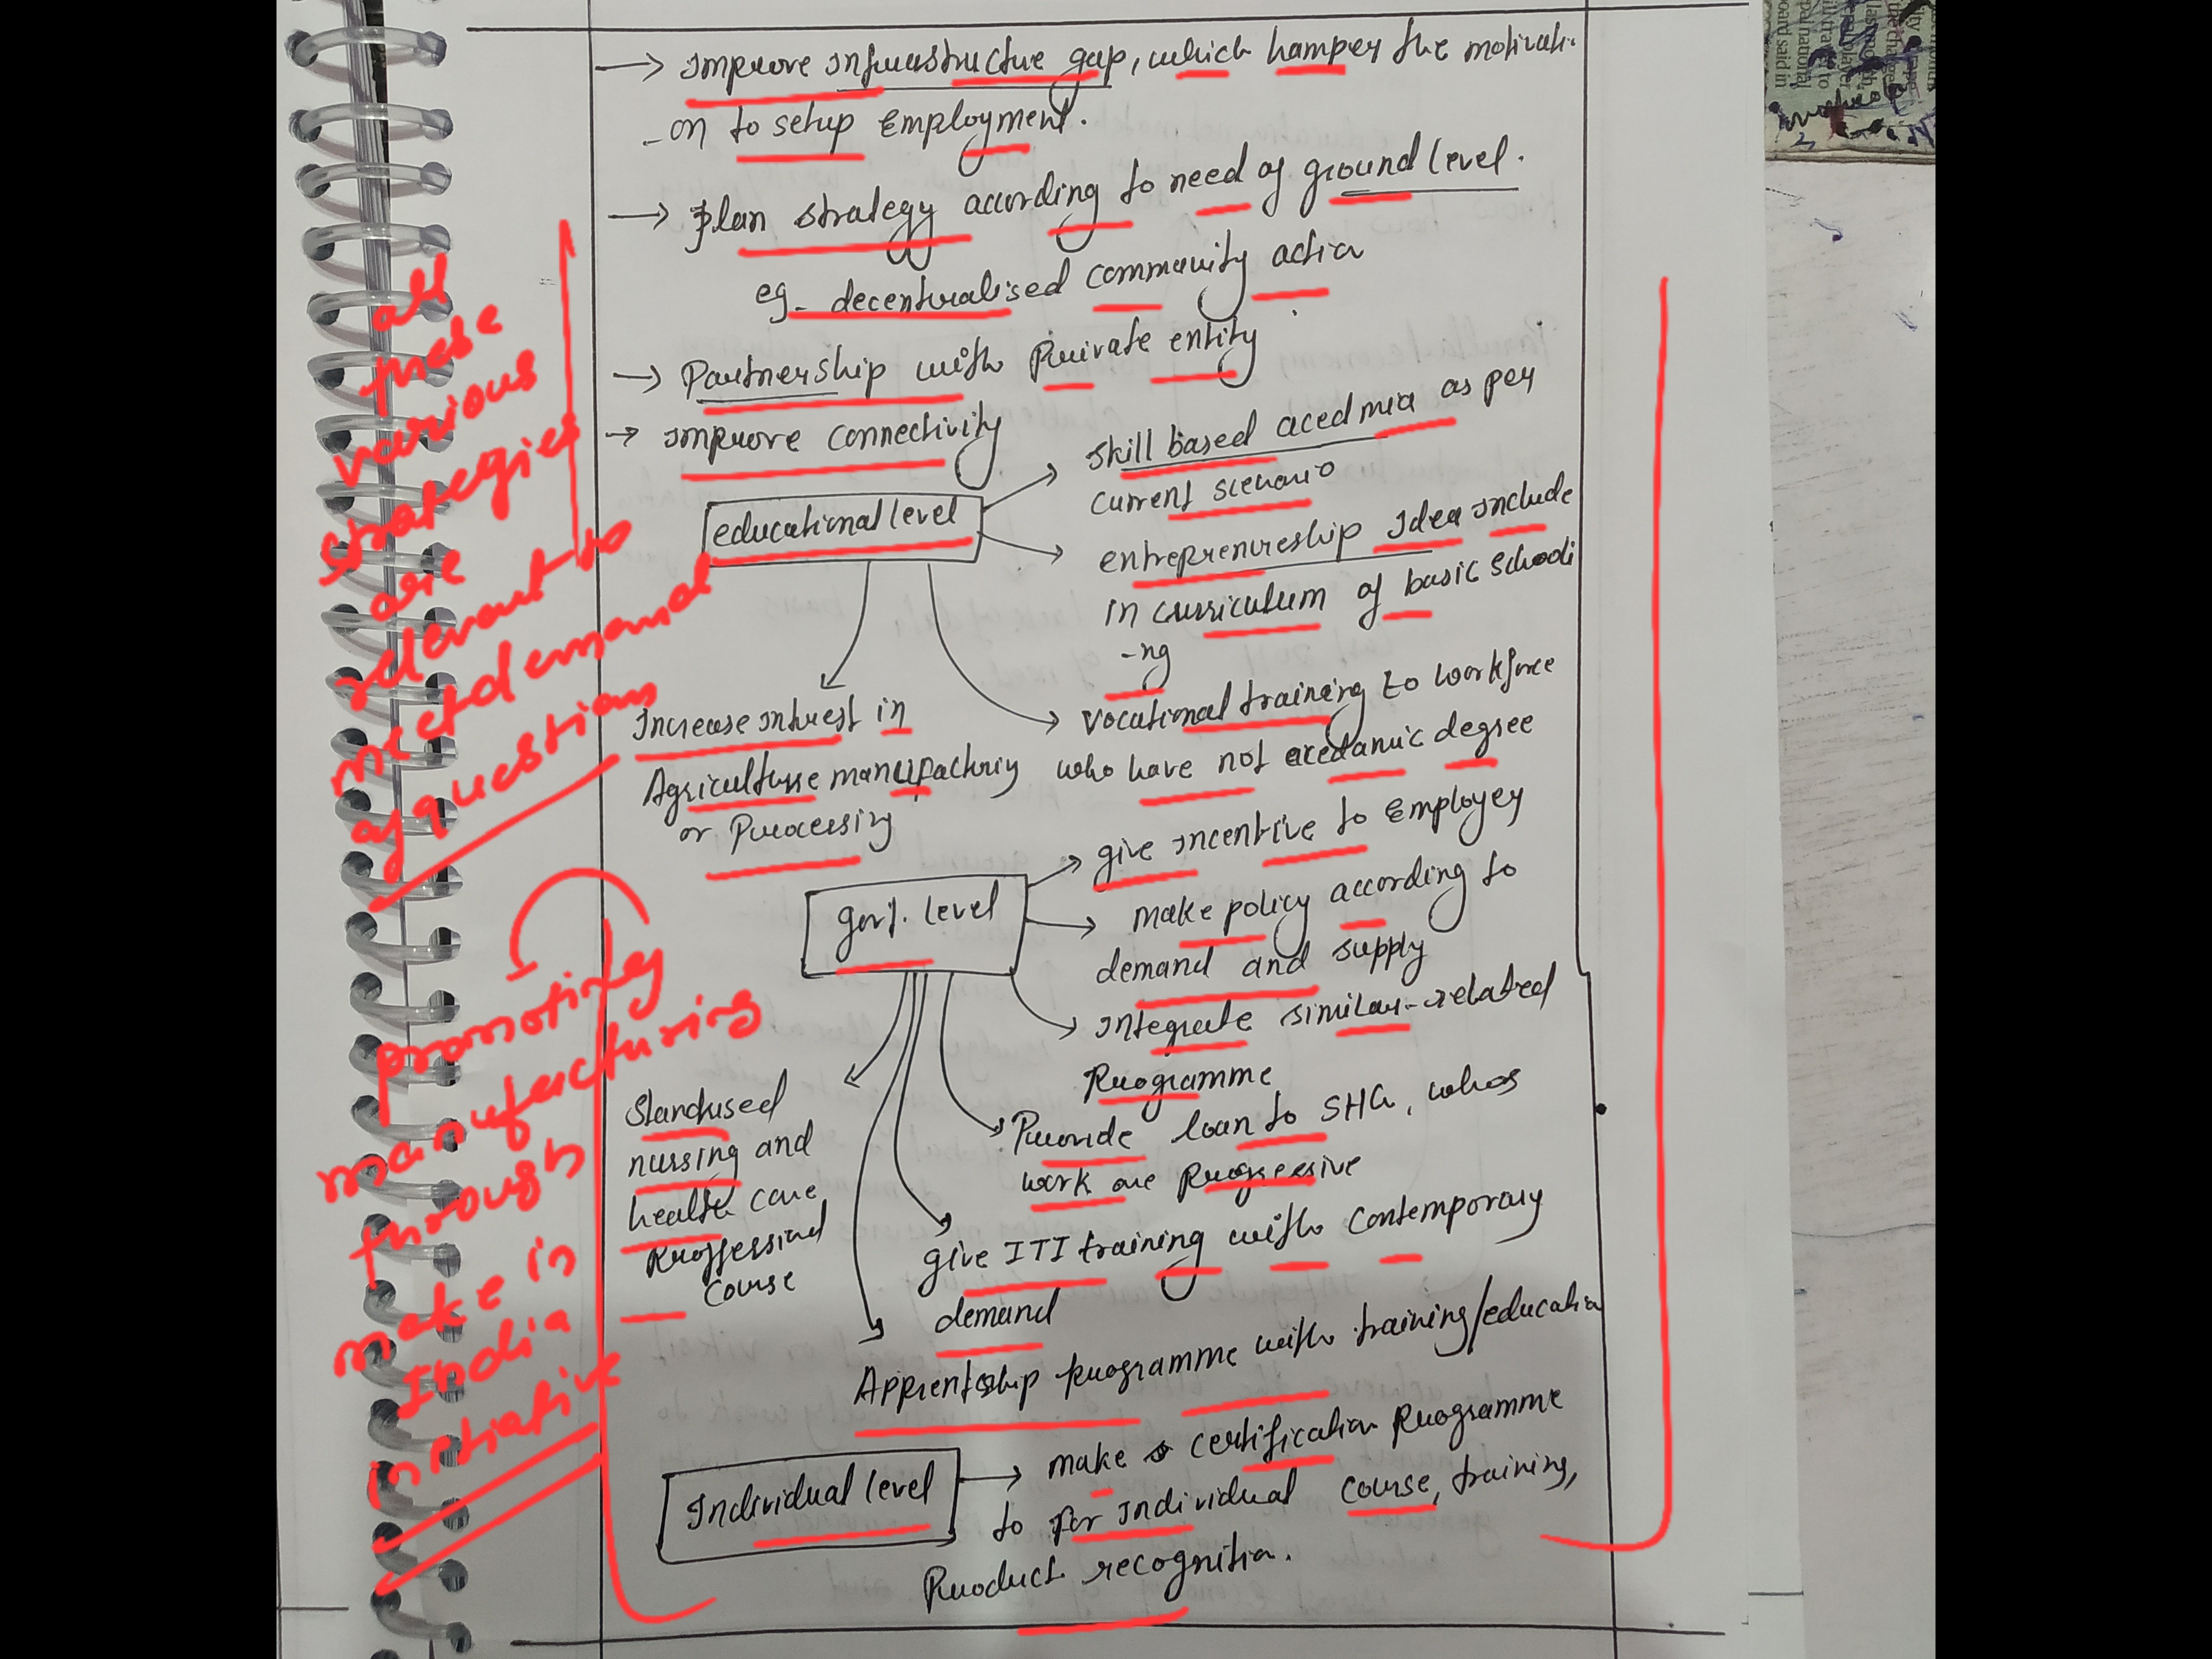 → Improve Infrastructure gap, which hamper the motivati-
-on to setup Employment.
→ plan strategy according to need of ground level.
eg- decentralised community action
→ Partnership with Private entity
→ Improve connectivity
educational level
→ skill based acedmia as per
current scenario
→ entreprenureship Idea include
in curriculum of basic schooli
-ng
→ vocational training to workforce
who have not acedamic degree
Increase intrest in
Agriculture manufacturing
or Processing
govt. level
→ give incentive to Employer
→ make policy according to
demand and supply
→ Integrate similar-related
Programme
Provide loan to SHG, whos
work are Progressive
give ITI training with contemporary
demand
Apprentship programme with training/education
nursing and
health care
course
Individual level
→ make certification Programme
to for individual course, training,
Product recognition.
all
these
various
strategies
are
relevant to
meet demand
of questions
promoting
manufacturing
through
make in
India
initiative